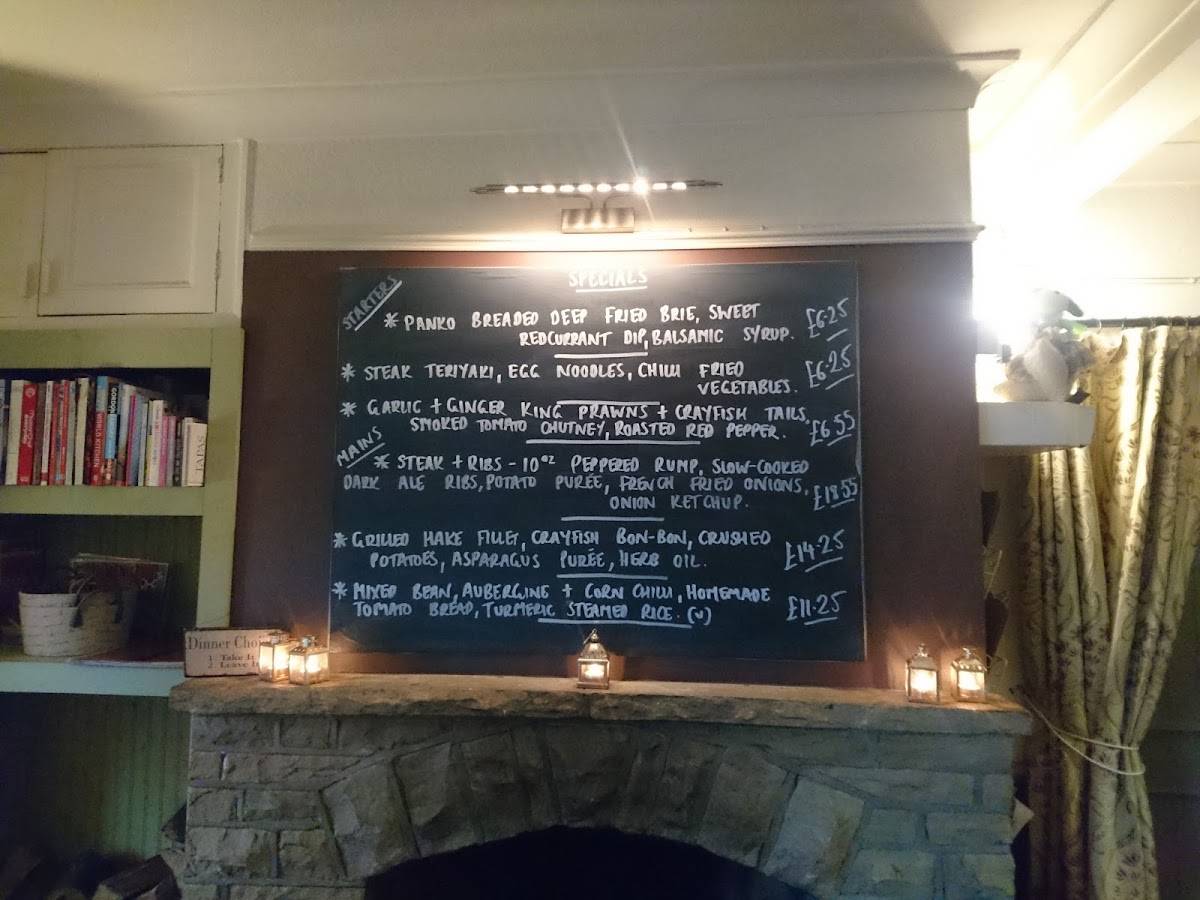 SPECIALS
STARTERS
* PANKO BREADED DEEP FRIED BRIE, SWEET
REDCURRANT DIP, BALSAMIC SYRUP. £6.25
* STEAK TERIYAKI, EGG NOODLES, CHILLI FRIED
VEGETABLES. £6.25
* GARLIC + GINGER KING PRAWNS + CRAYFISH TAILS,
SMOKED TOMATO CHUTNEY, ROASTED RED PEPPER. £6.55
MAINS
* STEAK + RIBS - 10oz PEPPERED RUMP, SLOW-COOKED
DARK ALE RIBS, POTATO PURÉE, FRENCH FRIED ONIONS,
ONION KETCHUP. £18.55
* GRILLED HAKE FILLET, CRAYFISH BON-BON, CRUSHED
POTATOES, ASPARAGUS PURÉE, HERB OIL. £14.25
* MIXED BEAN, AUBERGINE + CORN CHILLI, HOMEMADE
TOMATO BREAD, TURMERIC STEAMED RICE. (v) £11.25
Dinner
1. Take It
2. Leave It
TAPAS